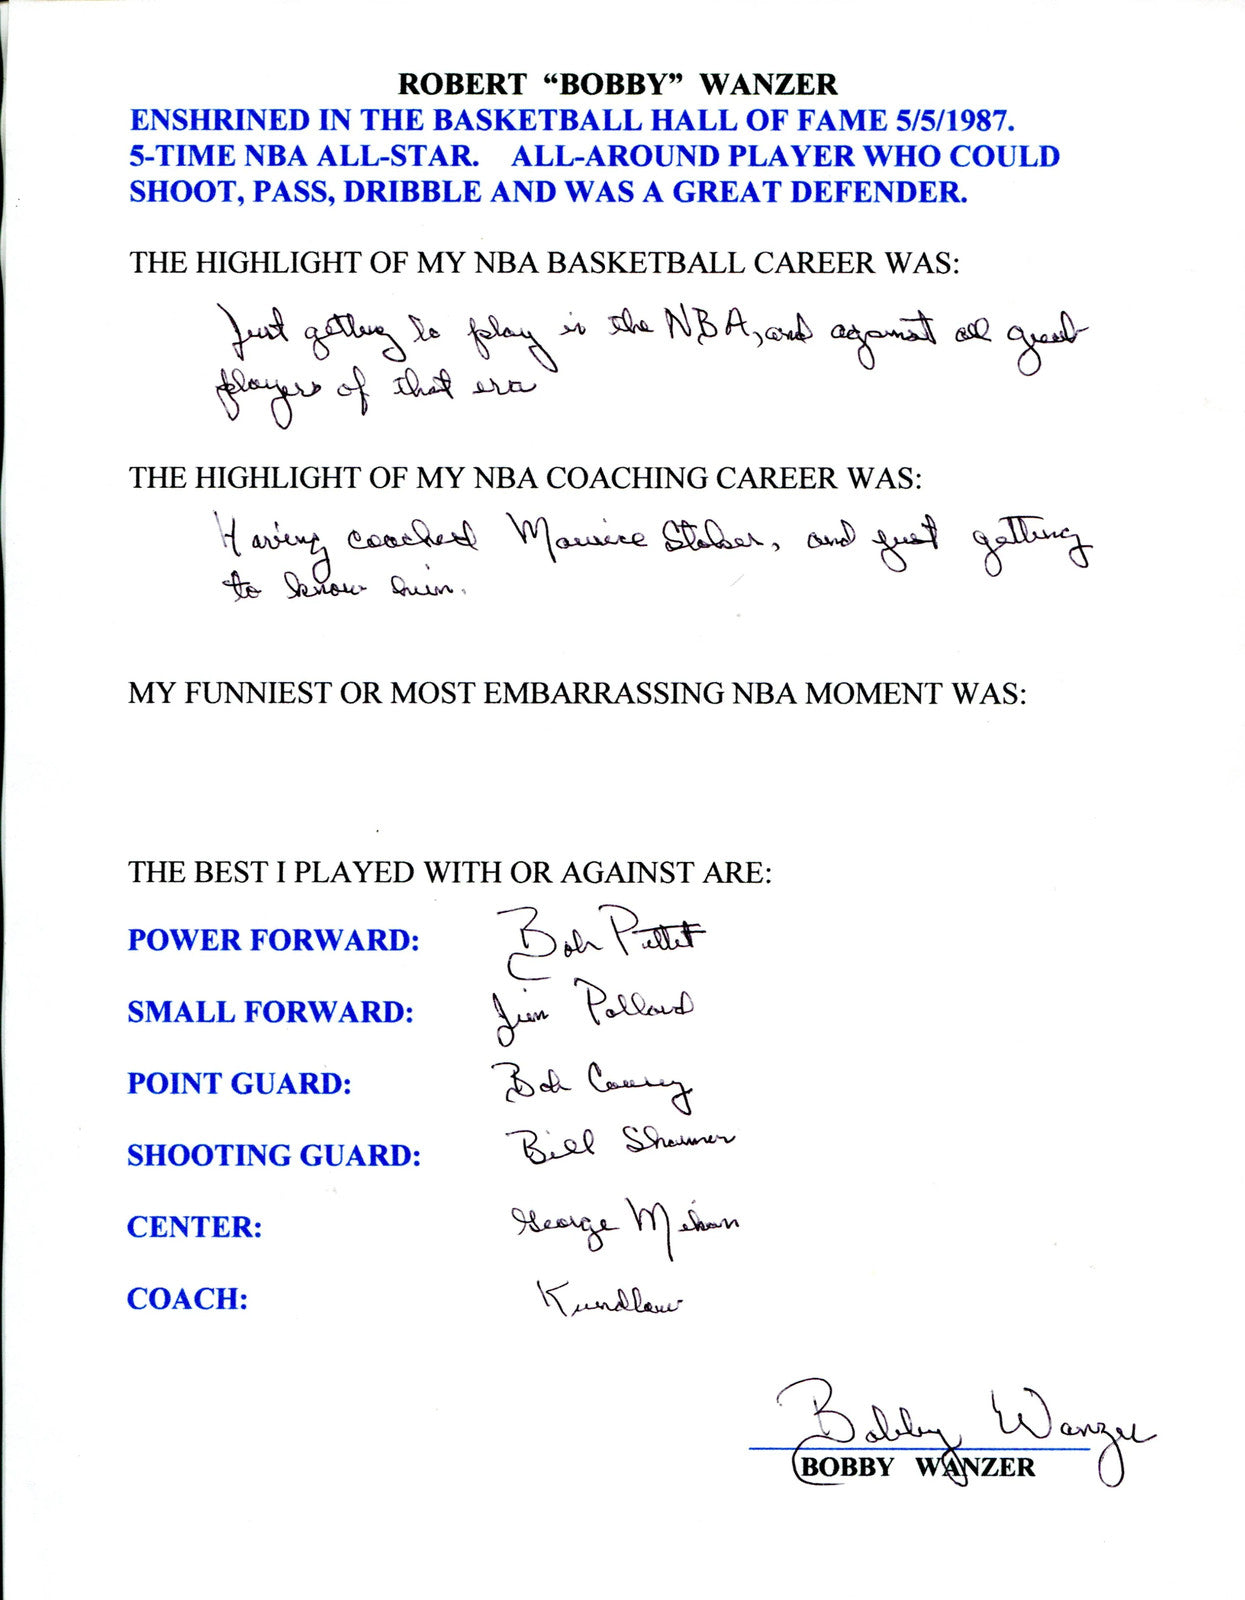 ROBERT “BOBBY” WANZER
ENSHRINED IN THE BASKETBALL HALL OF FAME 5/5/1987.
5-TIME NBA ALL-STAR. ALL-AROUND PLAYER WHO COULD
SHOOT, PASS, DRIBBLE AND WAS A GREAT DEFENDER.
THE HIGHLIGHT OF MY NBA BASKETBALL CAREER WAS:
Just getting to play in the NBA, and against all great
players of that era
THE HIGHLIGHT OF MY NBA COACHING CAREER WAS:
Having coached Maurice Stokes, and just getting
to know him.
MY FUNNIEST OR MOST EMBARRASSING NBA MOMENT WAS:
THE BEST I PLAYED WITH OR AGAINST ARE:
POWER FORWARD: Bob Pettit
SMALL FORWARD: Jim Pollard
POINT GUARD: Bob Cousy
SHOOTING GUARD: Bill
CENTER: George Mikan
COACH:
Bobby Wanzer
BOBBY WANZER